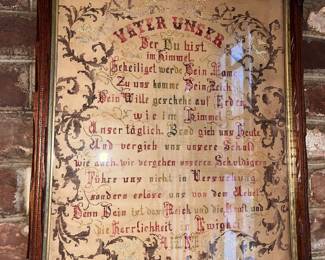 VATER UNSER
Der Du bist
im Himmel
Geheiliget werde Dein Name
Zu uns komme Dein Reich
Dein Wille geschehe auf Erden
wie im Himmel
Unser täglich Brod gieb uns heute
Und vergieb uns unsere Schuld
wie auch wir vergeben unseren Schuldigern
Führe uns nicht in Versuchung
sondern erlöse uns von dem Uebel
Denn Dein ist das Reich und die Kraft und
die Herrlichkeit in Ewigkeit
AMEN